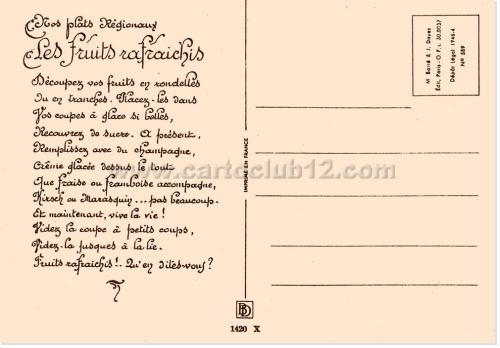 Nos plats Régionaux
Les fruits rafraichis
Découpez vos fruits en rondelles
Ou en tranches. Placez-les dans
Vos coupes à glace si belles,
Recouvrez de sucre. A présent,
Remplissez avec du champagne,
Crème glacée dessus le tout
Que fraise ou framboise accompagne,
Kirsch ou Marasquin... pas beaucoup.
Et maintenant, vive la vie !
Videz la coupe à petits coups,
Videz-la jusques à la lie.
Fruits rafraichis !. Qu'en dites-vous ?
www.cartoclub12.com
IMPRIMÉ EN FRANCE
M. Barré & J. Dayez
Édit. Paris - O.P.L. 30.0037
Dépôt Légal 1946-4
N° 589
BD
1420 X